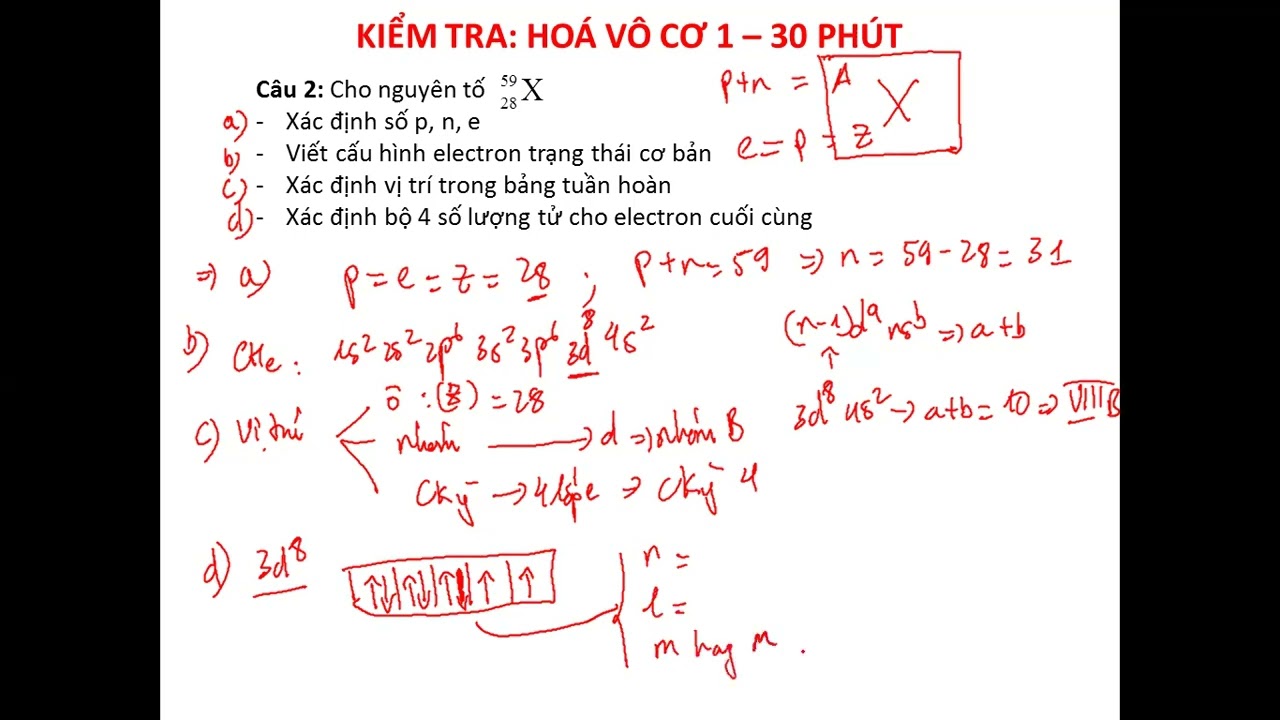 KIỂM TRA: HOÁ VÔ CƠ 1 – 30 PHÚT
Câu 2: Cho nguyên tố ⁵⁹₂₈X
a) - Xác định số p, n, e
b) - Viết cấu hình electron trạng thái cơ bản
c) - Xác định vị trí trong bảng tuần hoàn
d) - Xác định bộ 4 số lượng tử cho electron cuối cùng
p+n = A X
e = p = Z
=> a) p = e = Z = 28 ; p+n = 59 => n = 59 - 28 = 31
b) CHe: 1s² 2s² 2p⁶ 3s² 3p⁶ 3d⁸ 4s²
(n-1)dᵃ nsᵇ => a+b
↑
3d⁸ 4s² → a+b = 10 => VIIIB
c) Vị trí
ô : (Z) = 28
nhóm → d => nhóm B
CKỳ → 4 lớp e => CKỳ 4
d) 3d⁸ ↑↓ ↑↓ ↑↓ ↑ ↑
n =
l =
m hay m .